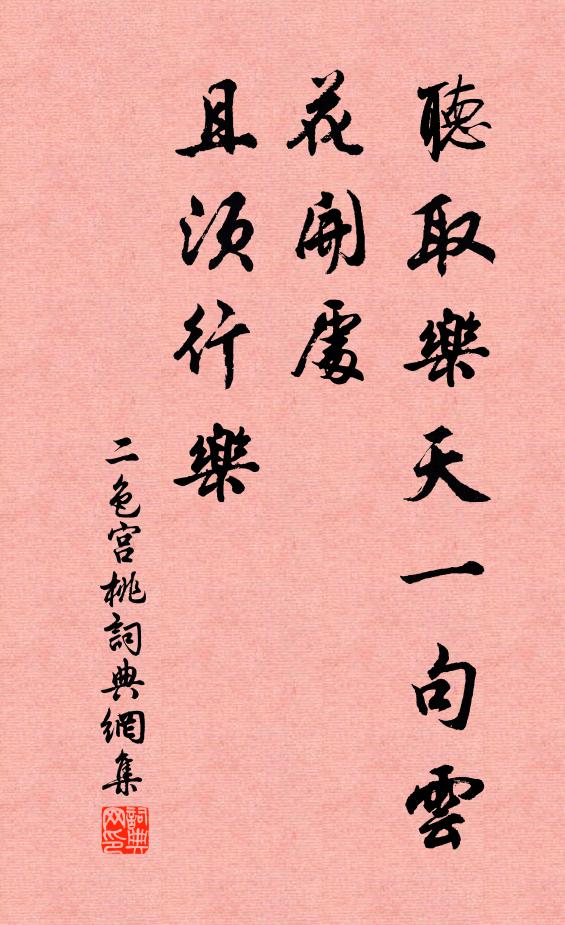 聽取樂天一句雲
花開處
且須行樂
二色宮桃詞典網集
詞典网印